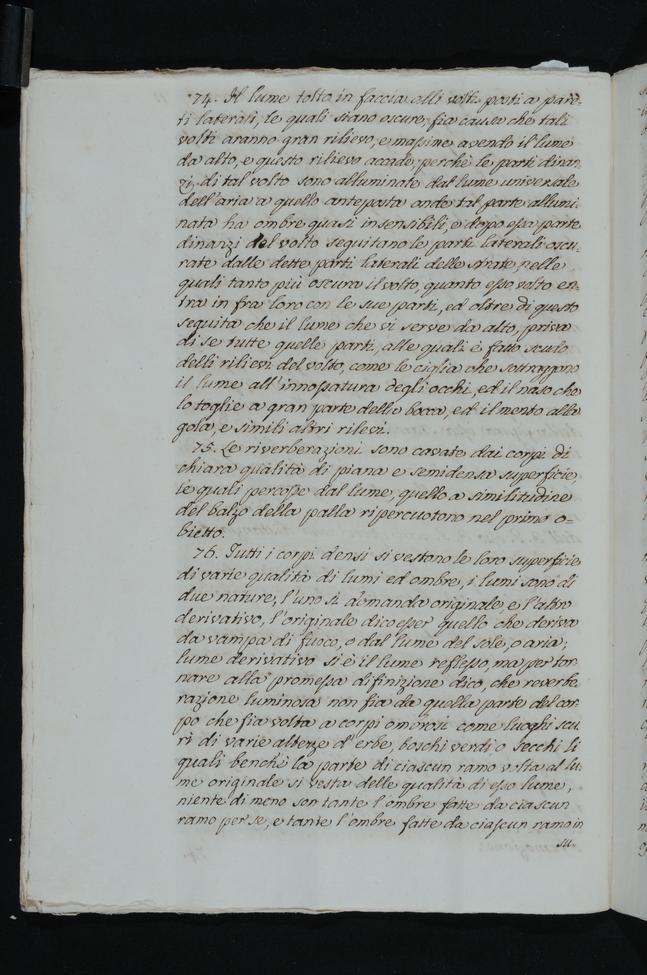 74. Il lume tolto in faccia alli volti posti a pare-
ti laterali, le quali siano oscure, fia causa che tali
volti aranno gran rilievo, e massime avendo il lume
da alto, e questo rilievo accade, perche le parti dinan
zi, di tal volto sono alluminate dal lume universale
dell'aria a quello anteposta onde tal parte allumi
nata ha ombre quasi insensibili, e dopo essa parte
dinanzi del volto seguitano le parti laterali oscu-
rate dalle dette parti laterali delle strate, nelle
quali tanto più oscura il volto, quanto esso volto en-
tra in fra loro con le sue parti, ed oltre di questo
seguita che il lume che vi serve da alto, priva
di se tutte quelle parti, alle quali è fatto scudo
delli rilievi del volto, come le ciglia che sottraggono
il lume all'innossatura degli occhi, ed il naso che
lo toglie a gran parte della bocca, ed il mento alla
gola, e simili altri rilevi.
75. Le riverberazioni sono cavate dai corpi di
chiara qualità di piana e semidensa superficie,
le quali percosse dal lume, quello a similitudine
del balzo della palla ripercuotono nel primo o=
bietto.
76. Tutti i corpi densi si vestono le loro superficie
di varie qualità di lumi ed ombre, i lumi sono di
due nature, l'uno si domanda originale, e l'altro
derivativo, l'originale dico esser quello che deriva
da vampa di fuoco, o dal lume del sole, o aria;
lume derivativo si è il lume reflesso, ma per tor-
nare alla promessa difinizione dico, che reverbe
razione luminosa non fia da quella parte del cor
po che fia volta a corpi ombrosi come luoghi scu
ri di varie altezze d'erbe, boschi verdi o secchi li
quali benchè la parte di ciascun ramo volta al lu-
me originale si vesta delle qualità di esso lume,
niente di meno son tante l'ombre fatte da ciascun
ramo per se, e tante l'ombre fatte da ciascun ramo in
su.